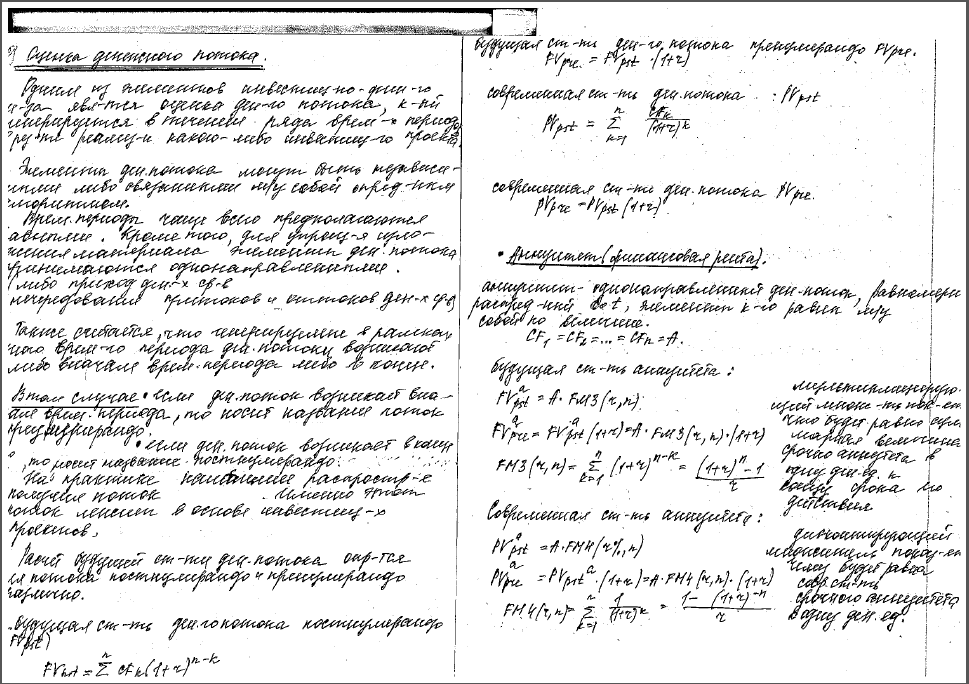 Оценка денежного потока.
Одним из элементов инвестиц-по-ден-го
явл-тся оценка ден-го потока, к-ый
генерируется в течении ряда врем-х периодо
рез-те реализ-и какого-либо инвестиц-го проекта
Элементы ден.потока могут быть независи-
мыми либо связанными м/у собой опред-ным
Врем.периоды чаще всего предполагаются
равными. Кроме того, для упрощ-я изло-
жения материала элементы ден.потока
принимаются однонаправленными.
(либо приход ден-х ср-в
нечередования притоков и оттоков ден-х ср-в)
Также считается, что генерируемые в рамках
врем-го периода ден.потоки возникают
либо вначале врем.периода либо в конце.
В том случае • если ден.поток возникает вна-
чале врем.периода, то носит название поток
пренумерандо
• если ден.поток возникает в конце
, то носит название постнумерандо.
На практике наибольшее распростр-е
получил поток . Именно этот
поток лежит в основе инвестиц-х
проектов.
Расчёт будущей ст-ти ден.потока опр-тся
потока постнумерандо и пренумерандо
различно.
Будущая ст-ть ден.го потока постнумерандо
FVpst)
FVpst = Σ CFk(1+r)^n-k
будущая ст-ть ден-го, потока пренумерандо FVpre.
FVpre = FVpst · (1+r)
современная ст-ть ден.потока : PVpst
PVpst = n Σ k=1 CFk / (1+r)^k
современная ст-ть ден.потока PVpre.
PVpre = PVpst (1+r)
• Аннуитет (финансовая рента).
аннуитет - однонаправленный ден-поток, равномерн
распред-ный t, элементы к-го равны м/у
собой по величине.
CF1 = CF2 = ... = CFn = A.
Будущая ст-ть аннуитета :
FV^a pst = A · FM3 (r, n)
FV^a pre = FV^a pst (1+r) = A · FM3 (r, n) · (1+r)
FM3 (r, n) = n Σ k=1 (1+r)^n-k = (1+r)^n - 1 / r
мультиплицирую-
щий множ-ть пок-ет
что будет равно сум
марная величина
срочного аннуитета в
одну ден.ед. к
концу срока его
действия
Современная ст-ть аннуитета :
PV^a pst = A · FM4 (r%, n)
PV^a pre = PVpst^a · (1+r) = A · FM4 (r, n) · (1+r)
FM4 (r, n) = n Σ k=1 1 / (1+r)^k = 1 - (1+r)^-n / r
дисконтирующий
множитель показ-ет
чему будет равна
совр.ст-ть
срочного аннуитета
в одну ден.ед.